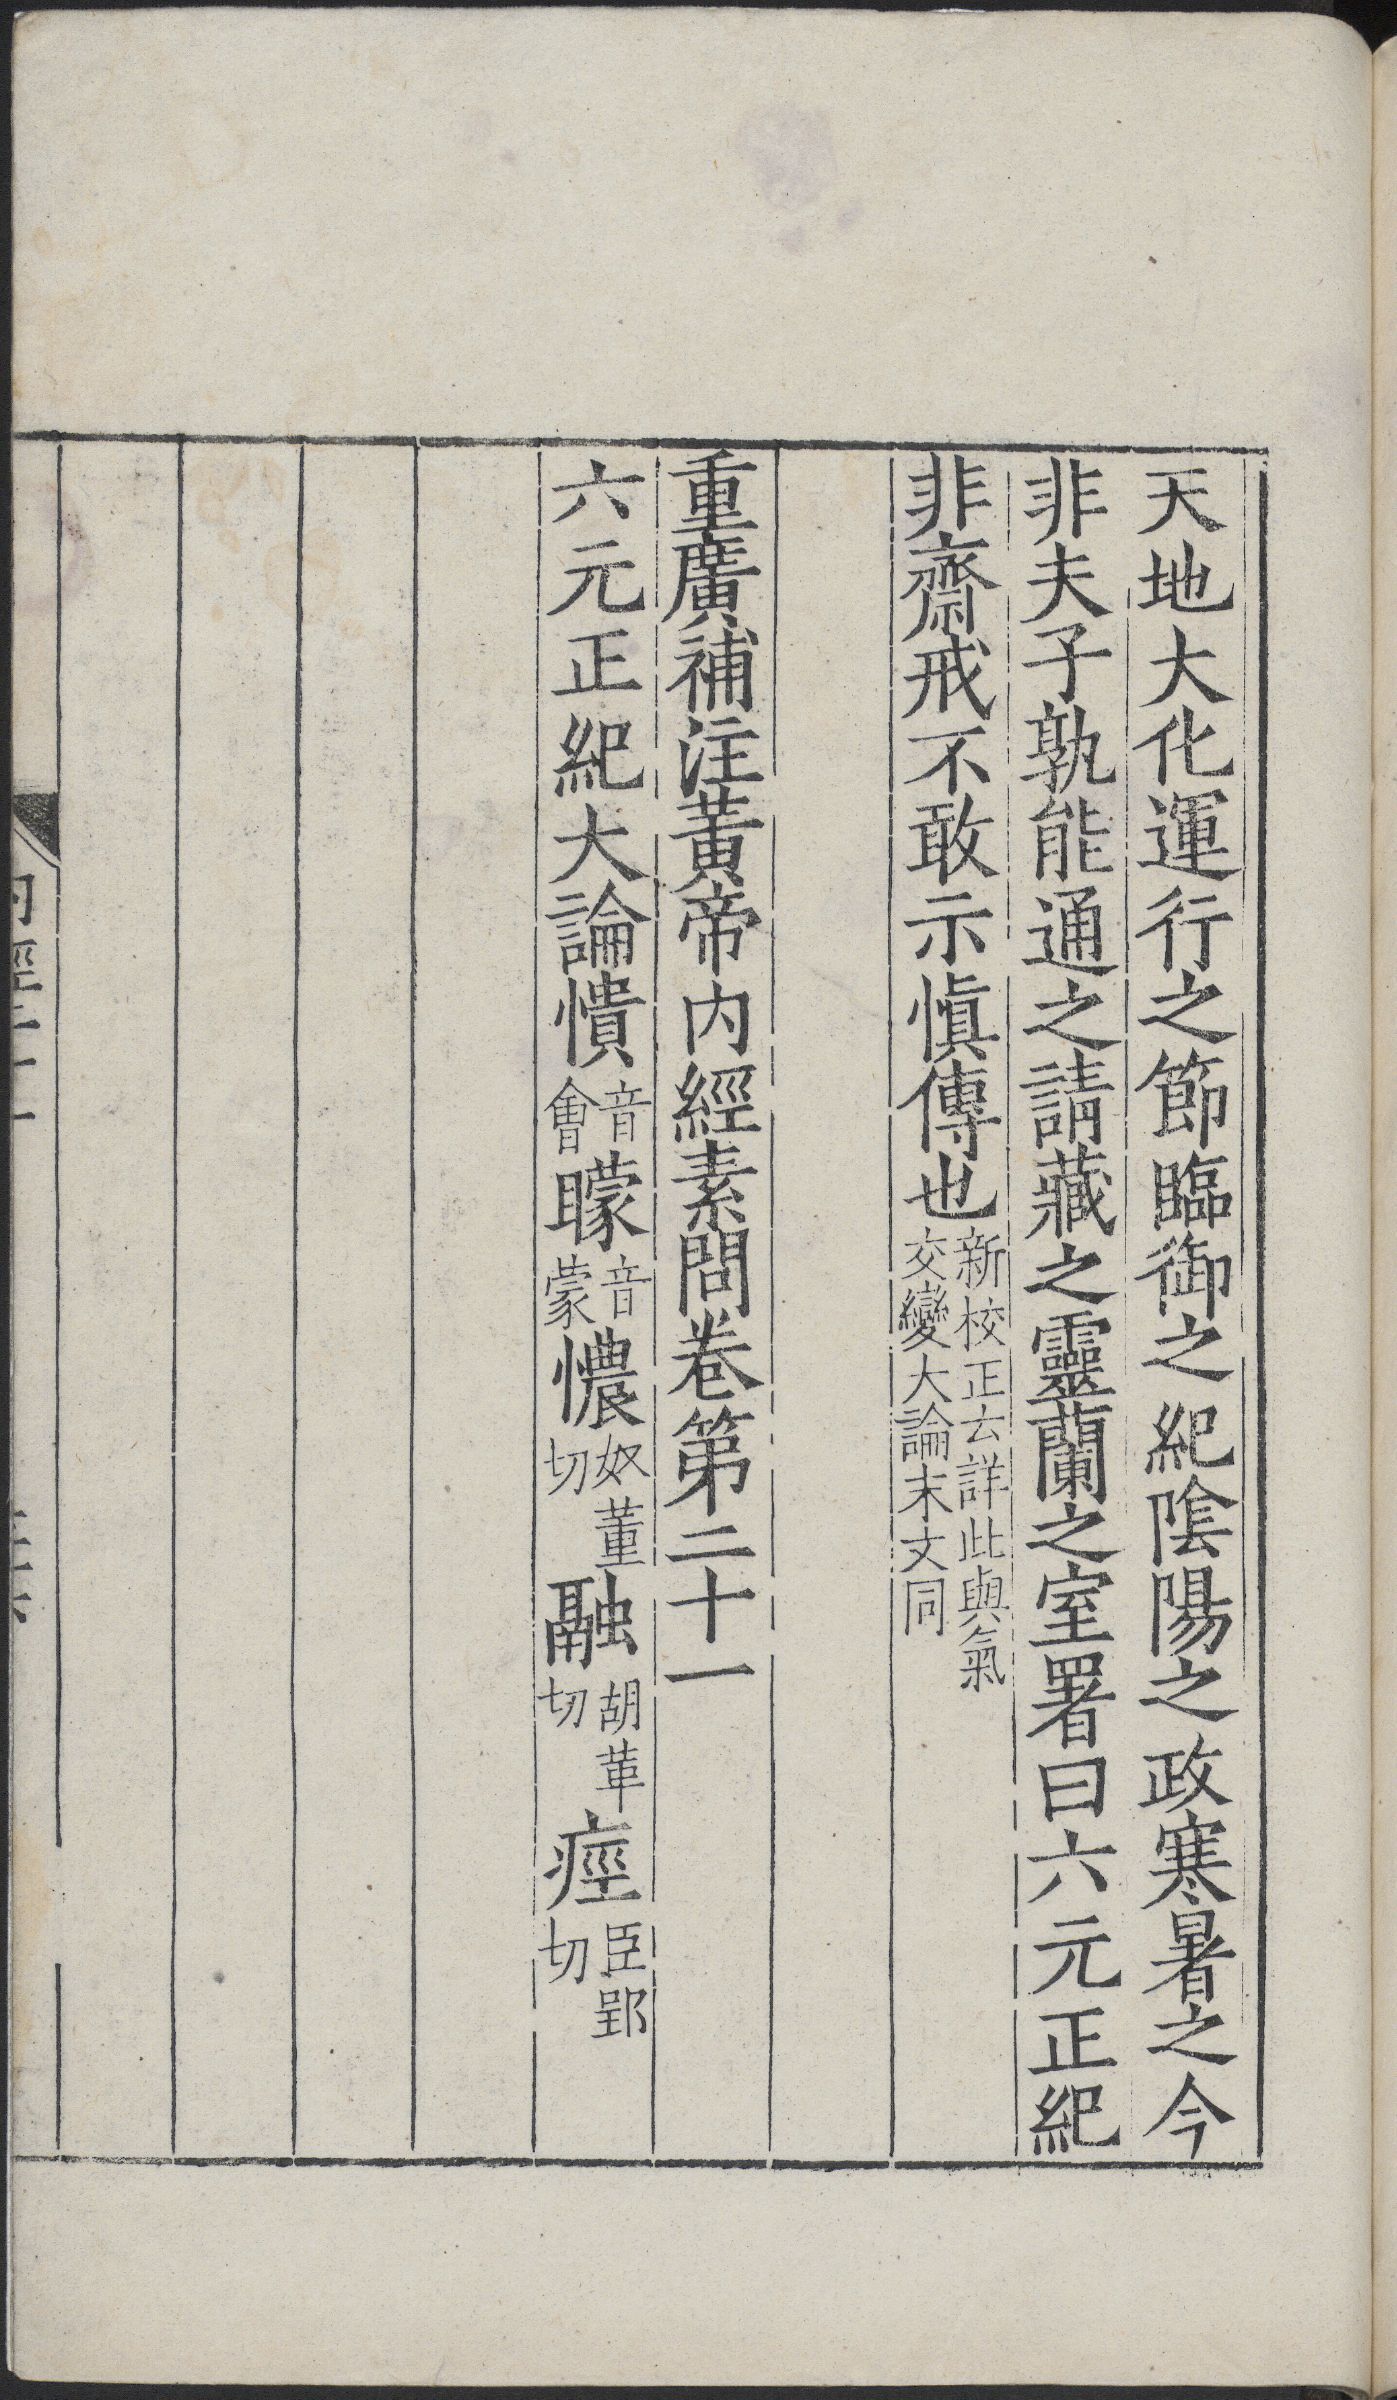 天地大化運行之節臨御之紀陰陽之政寒暑之今
非夫子孰能通之請藏之靈蘭之室署曰六元正紀
非齋戒不敢示慎傳也新校正云詳此與氣
交變大論末文同
重廣補注黃帝內經素問卷第二十一
六元正紀大論憒音會矇音蒙憹奴董切䶱胡革切痙巨郢切
內經二十一